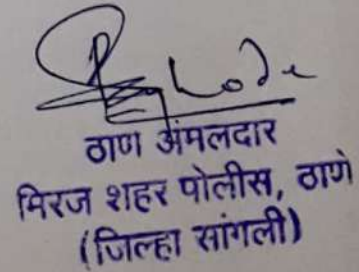 ठाण अंमलदार
मिरज शहर पोलीस, ठाणे
(जिल्हा सांगली)